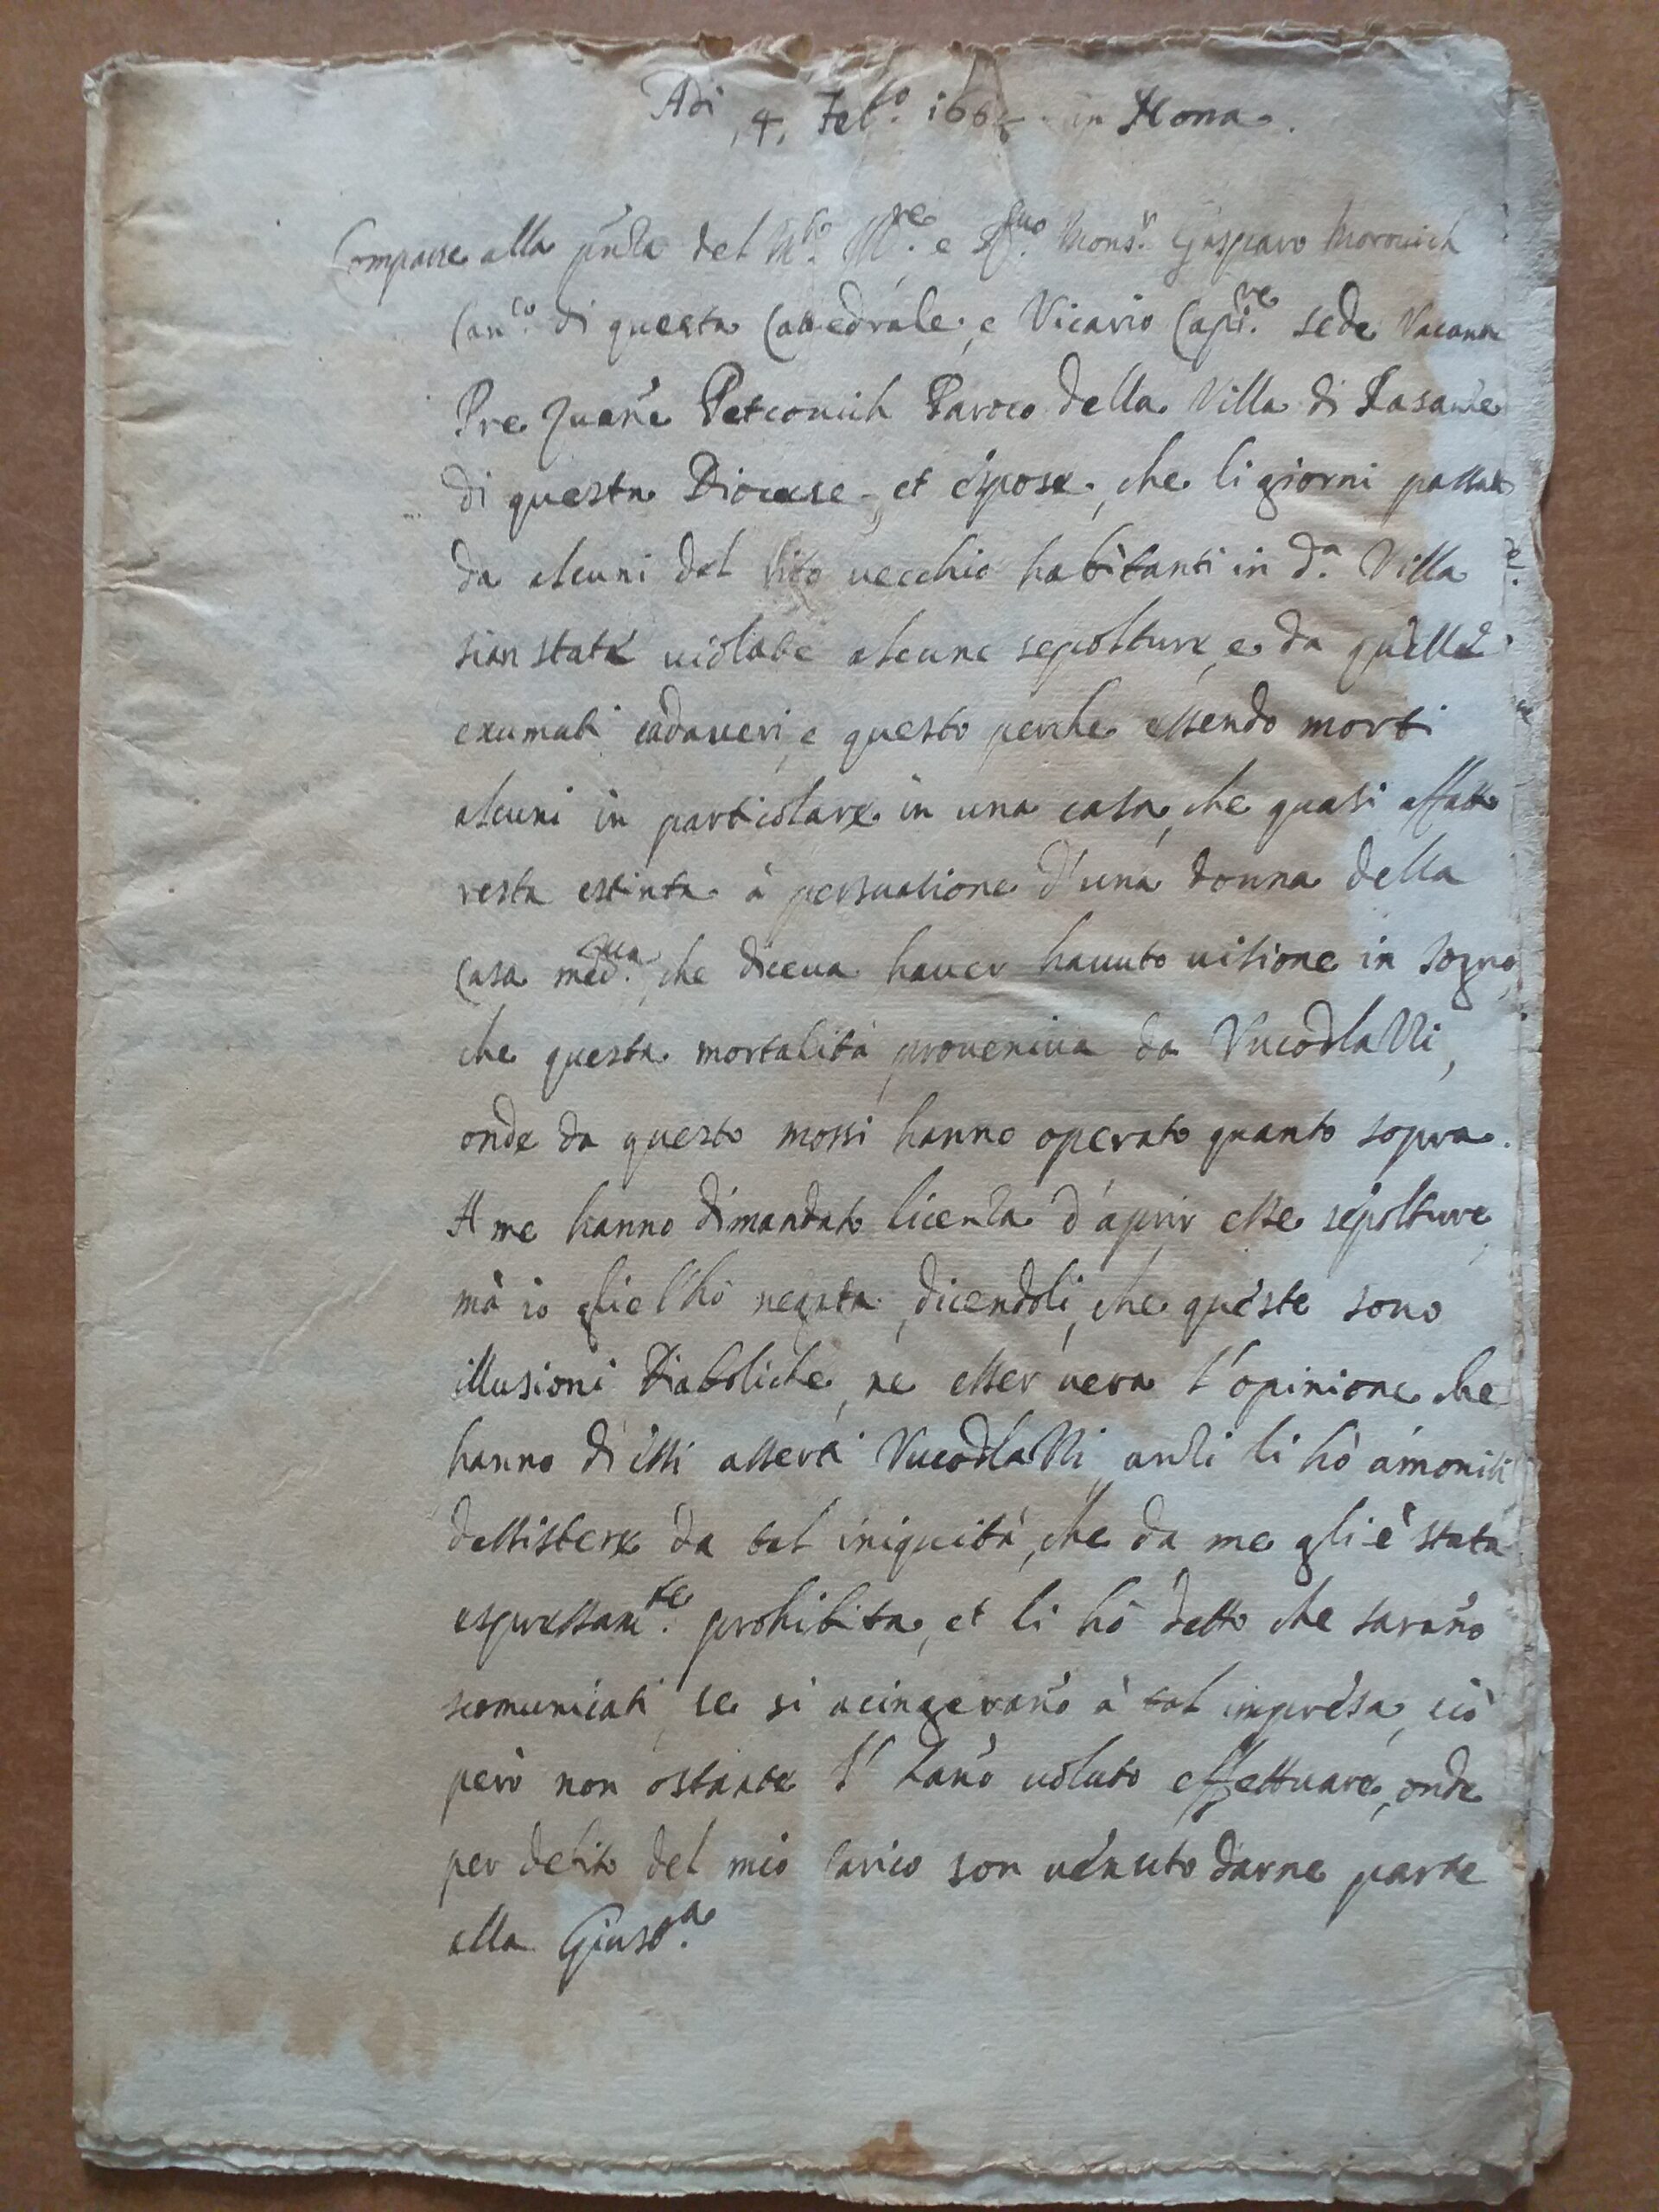 Adi ,4, Feb.º 166 in Nona.
Comparse alla pñza del M.to Ill.re e R.mo Mons.r Gasparo Morovich
Can.co di questa Catedrale, e Vicario Cap.re sede Vacante
Pre Zuañe Petcovich Paroco della Villa di Rasanze
di questa Diocese, et espose, che li giorni passati
da alcuni del rito vecchio habitanti in d.a Villa
sian state violate alcune sepolture, e da quelle
exumati cadaveri, e questo perche essendo morti
alcuni in particolare in una casa, che quasi affato
resta estinta à persuasione d'una donna della
Casa med.ma, che diceua hauer hauuto uisione in sogno,
che questa mortalità proueniua da Vucodlazzi,
onde da questo mossi hanno operato quanto sopra.
A me hanno dimandato licenza d'aprir esse sepolture,
mà io gliel'hò negata, dicendoli, che queste sono
illusioni Diaboliche, ne esser uera l'opinione che
hanno di essi Vucodlazzi, anzi li hò amoniti
dessistere da tal iniquità, che da me gli è stata
espressam.te prohibita, et li hò detto che sarañо
scomunicati, se si acingerañо à tal impresa, ciò
però non ostante l'hañо uoluto effettuare, onde
per debito del mio carico son uenuto darne parte
alla Giust.a